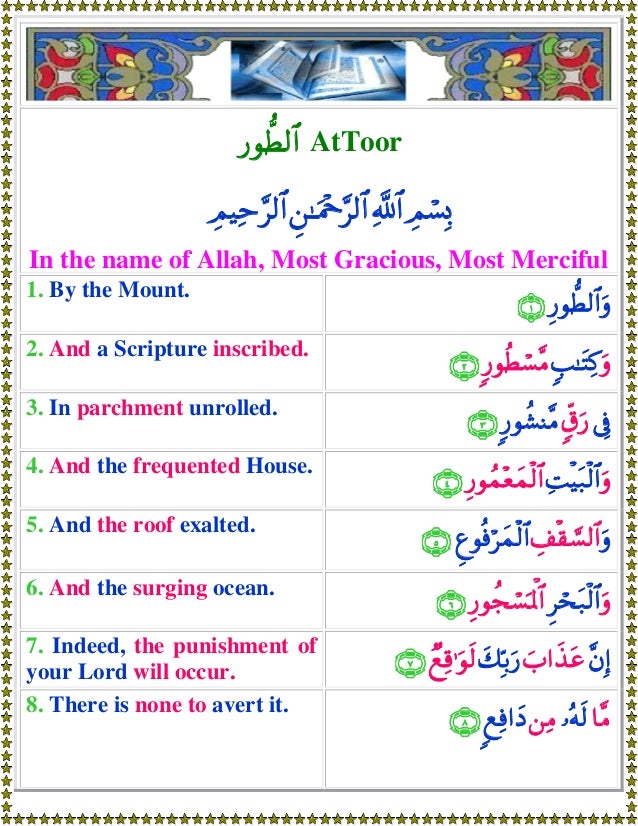 ٱلطُّور AtToor
بِسْمِ ٱللَّهِ ٱلرَّحْمَـٰنِ ٱلرَّحِيمِ
In the name of Allah, Most Gracious, Most Merciful
1. By the Mount.
وَٱلطُّورِ ١
2. And a Scripture inscribed.
وَكِتَـٰبٍ مَّسْطُورٍ ٢
3. In parchment unrolled.
فِى رَقٍّ مَّنشُورٍ ٣
4. And the frequented House.
وَٱلْبَيْتِ ٱلْمَعْمُورِ ٤
5. And the roof exalted.
وَٱلسَّقْفِ ٱلْمَرْفُوعِ ٥
6. And the surging ocean.
وَٱلْبَحْرِ ٱلْمَسْجُورِ ٦
7. Indeed, the punishment of
your Lord will occur.
إِنَّ عَذَابَ رَبِّكَ لَوَٰقِعٌ ٧
8. There is none to avert it.
مَّا لَهُۥ مِن دَافِعٍ ٨